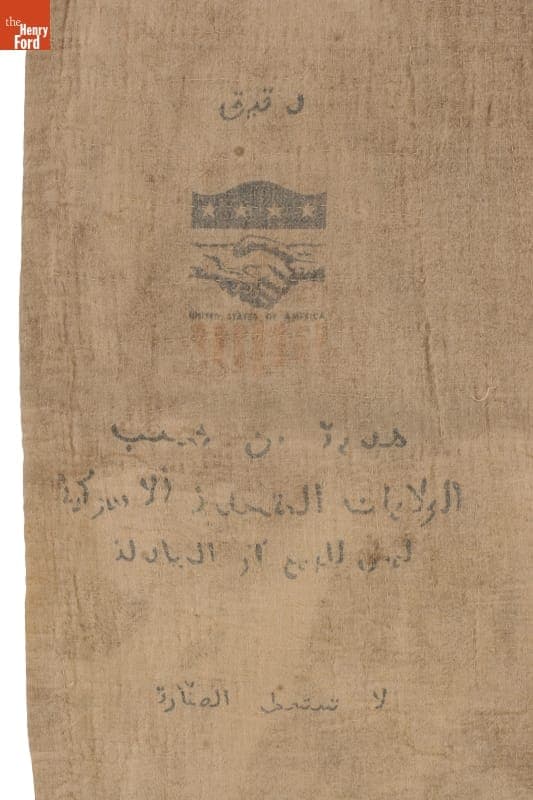 the
Henry
Ford
دقيق
UNITED STATES OF AMERICA
هدية من شعب
الولايات المتحدة الاميركية
ليس للبيع او المبادلة
لا تستعمل الصنّارة